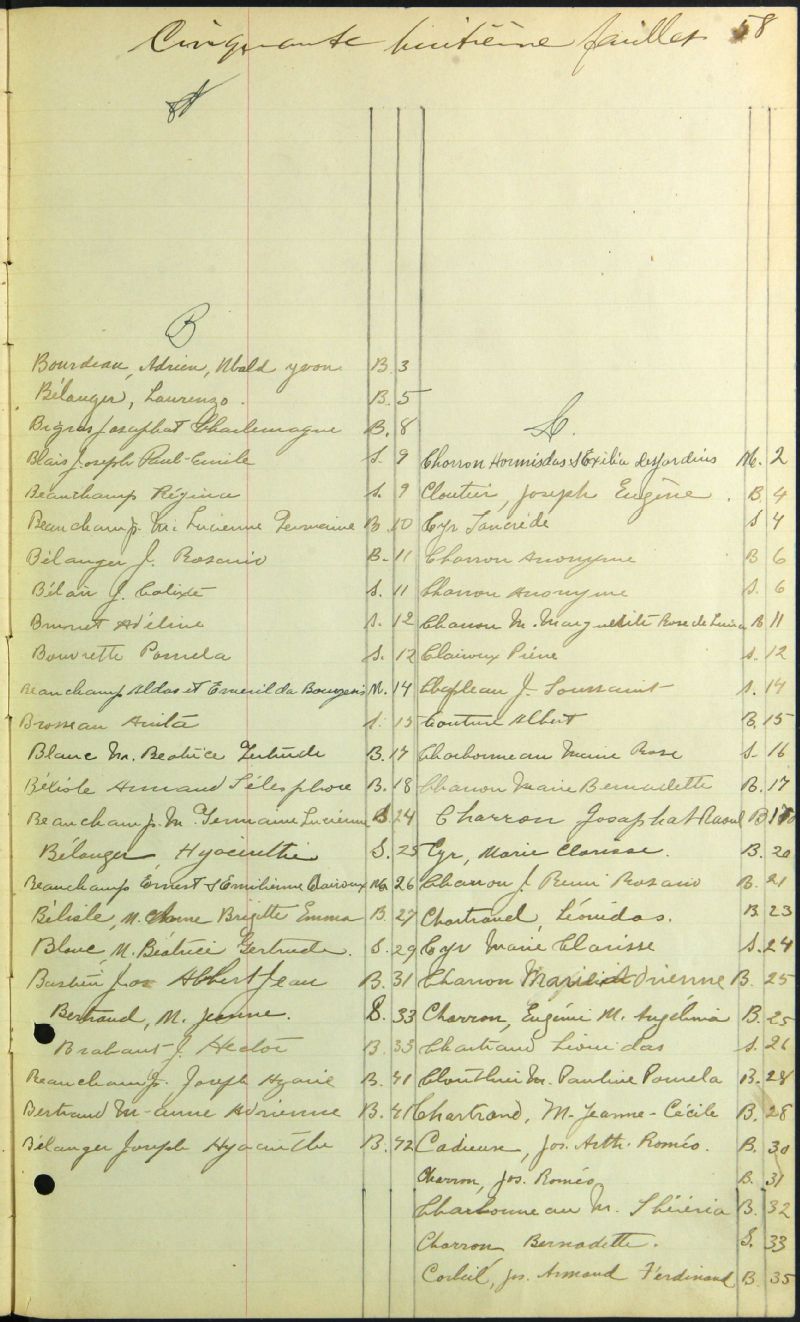 Cinquante huitième feuillet 58
A
B
Bourdeau, Adrien, Ubald yvon B. 3
Bélanger, Laurenzo. B. 5
Bigras Josaphat Charlemagne B. 8
Blais Joseph Paul-Emile S. 9
Beauchamp Régina S. 9
Beauchamp. M. Lucienne Germaine B. 10
Bélanger J. Rosario B. 11
Bélair J. Calixte S. 11
Brunet Adéline S. 12
Bouvrette Pamela S. 12
Beauchamp Aldas et Esmerilda Bourgeois M. 14
Brosseau Anita S. 15
Blanc M. Beatrice Gertrude B. 17
Bélisle Armand Télesphore B. 18
Beauchamp. M. Germaine Lucienne S. 24
Bélanger Hyacinthe S. 25
Beauchamp Ernest & Emilienne Clairoux M. 26
Bélisle, M. Anne Brigitte Emma B. 27
Blanc, M. Béatrice Gertrude. S. 29
Jos Albert Jean B. 31
Bertrand, M. Jeanne. S. 33
Brabant J. Hector B. 33
Beauchamp. Joseph B. 41
Bertrand M-anne Adrienne B. 41
Bélanger Joseph Hyacinthe B. 42
C.
Charron Hormisdas & Exilia Desjardins M. 2
Cloutier, Joseph Eugène. B. 4
Cyr Tancrède S. 4
Charron Anonyme B. 6
Charron Anonyme S. 6
Charron M. Marguerite Rose de Lima B. 11
Clairoux Pierre S. 12
Chapleau J. Toussaint S. 14
Couture Albert B. 15
Charbonneau Marie Rose S. 16
Charron Marie Bernadette B. 17
Charron Josaphat Raoul B
Cyr, Marie Clarisse. B. 20
Charron J. Remi Rosario B. 21
Chartrand Léonidas. B. 23
Cyr Marie Clarisse S. 24
Charron Marie Adrienne B. 25
Charron, Eugénie M. Angélina B. 25
Chartrand Léonidas S. 26
Clouthier M. Pauline Pamela B. 28
Chartrand, M-Jeanne-Cécile B. 28
Cadieux, Jos. Arth. Roméo. B. 30
Charron, Jos. Roméo B. 31
Charbonneau M. B. 32
Charron Bernadette. S. 33
Corbeil, Jos. Armand Ferdinand B. 35